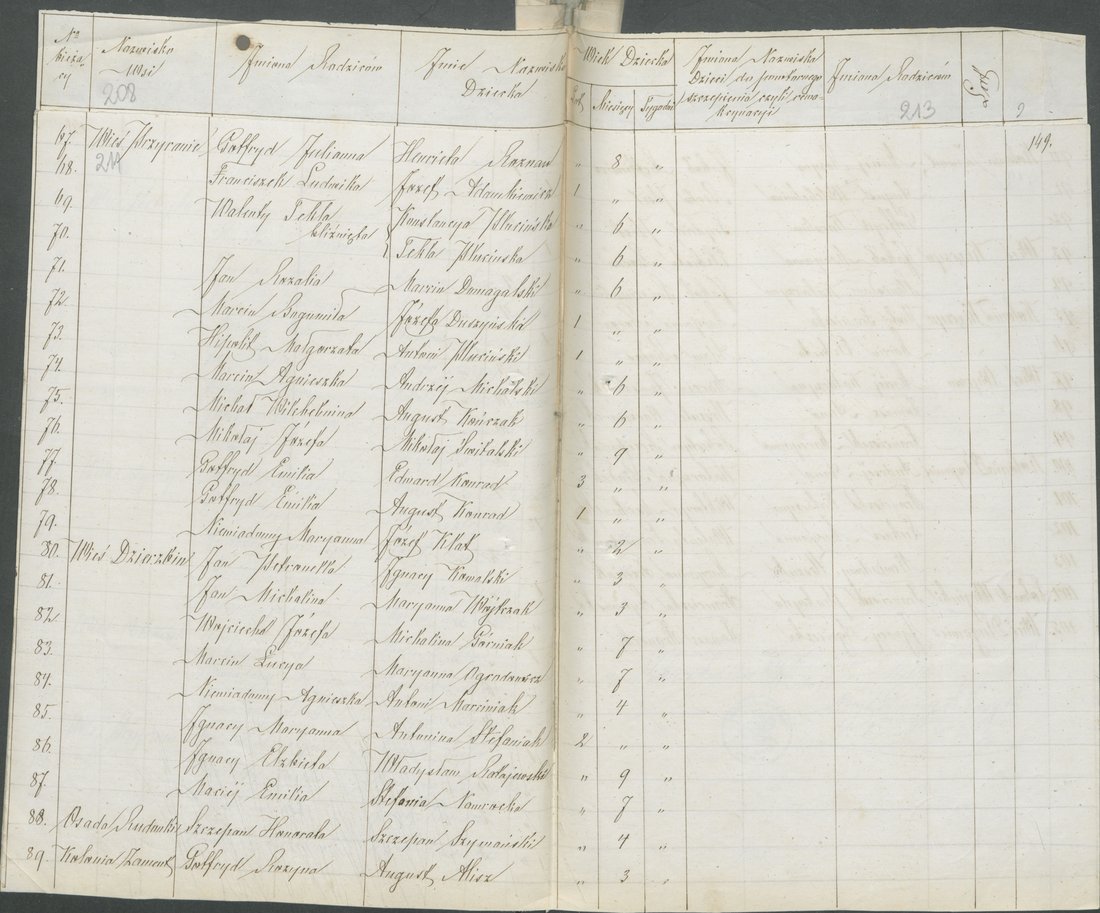 No bieżący Nazwisko Wsi Imiona Rodziców Imie Nazwisko Dziecka Wiek Dziecka Lat Miesięcy Tygodni Imiona Nazwiska Dzieci do powtórnego szczepienia czyli rewakcynacyi Imiona Rodziców
208 213
149.
67. Wieś Przyranie Gottfryd Julianna Henrieta Roznau " 8 "
211
68. Franciszek Ludwika Józef Adamkiewicz 1 " "
69. Walenty Tekla Konstancya Plucińska " 6 "
70. bliźnięta Tekla Plucińska " 6 "
71. Jan Rozalia Marcin Domagalski " 6 "
72. Marcin Bogumiła Józefa Duszyńska 1 " "
73. Hipolit Małgorzata Antoni Pluciński 1 " "
74. Marcin Agnieszka Andrzéj Michalski " 6 "
75. Michał Wilhelmina August Kończak " 6 "
76. Mikołaj Józefa Mikołaj Switalski " 9 "
77. Gottfryd Emilia Edward Konrad 3 " "
78. Gottfryd Emilia August Konrad 1 " "
79. Niewiadomy Maryanna Józef Klat " 2 "
80. Wieś Dzierzbin Jan Petronella Ignacy Kowalski " 3 "
81. Jan Michalina Maryanna Wojtczak " 3 "
82. Wojciech Józefa Michalina Górniak " 7 "
83. Marcin Lucya Maryanna " 7 "
84. Niewiadomy Agnieszka Antoni Marciniak " 4 "
85. Ignacy Maryanna Antonina Stefaniak 2 " "
86. Ignacy Elżbieta Władysław Ratajewski " 9 "
87. Maciéj Emilia Stefania Nawrocka " 7 "
88. Osada Szczepan Honorata Szczepan Szymański " 4 "
89. Kolonia Zament Gottfryd Rozyna August Alisz " 3 "